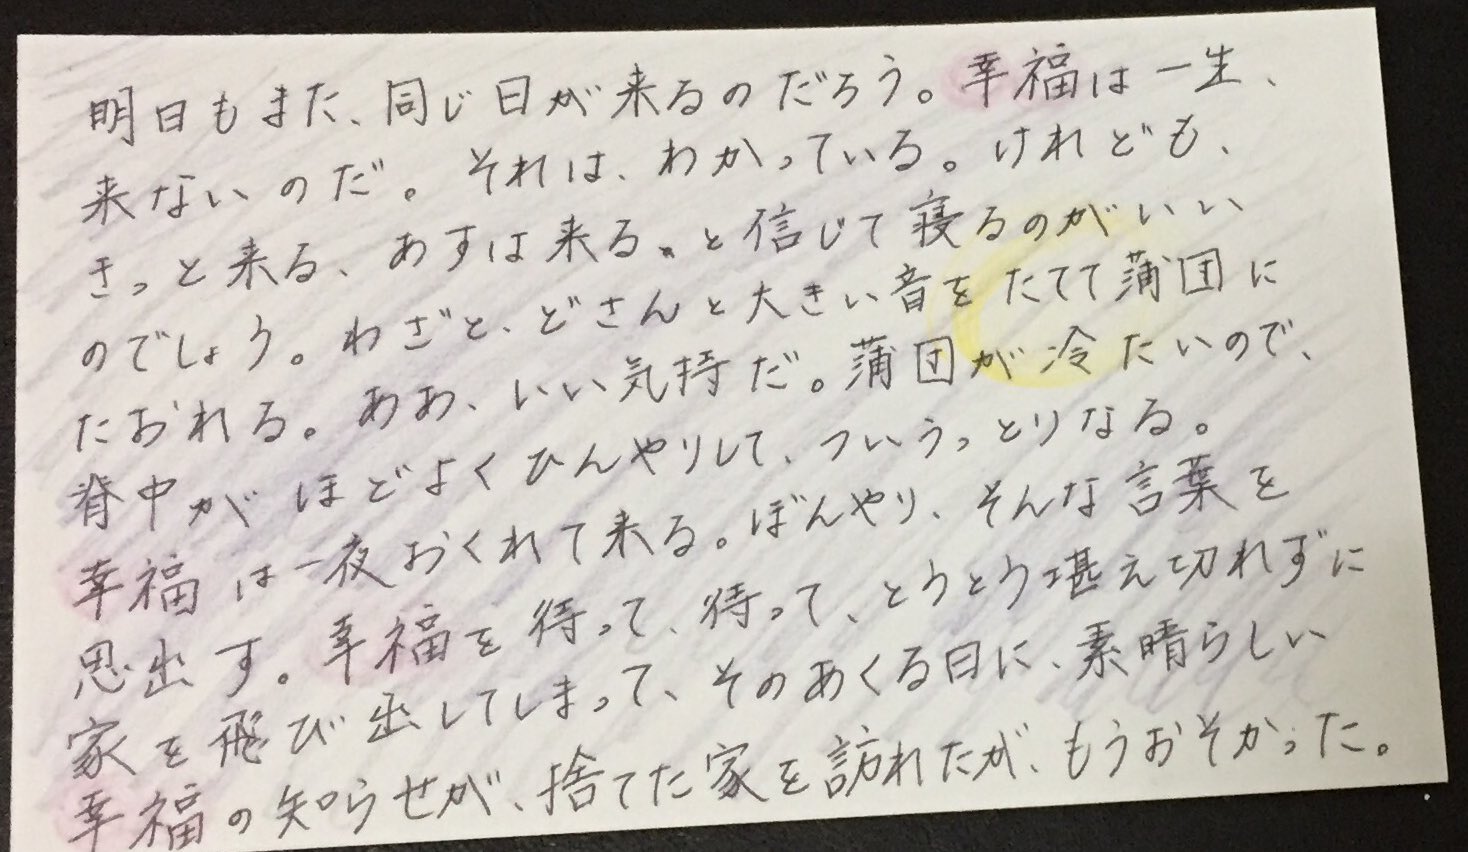 明日もまた、同じ日が来るのだろう。幸福は一生、
来ないのだ。それは、わかっている。けれども、
きっと来る、あすは来る、と信じて寝るのがいい
のでしょう。わざと、どさんと大きい音をたてて蒲団に
たおれる。ああ、いい気持だ。蒲団が冷たいので、
脊中がほどよくひんやりして、ついうっとりなる。
幸福は一夜おくれて来る。ぼんやり、そんな言葉を
思出す。幸福を待って、待って、とうとう堪え切れずに
家を飛び出してしまって、そのあくる日に、素晴らしい
幸福の知らせが、捨てた家を訪れたが、もうおそかった。